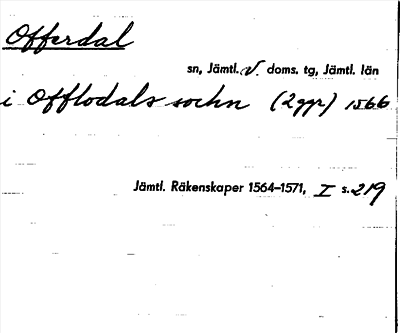 Offerdal
sn, Jämtl. v. doms. tg, Jämtl. län
i Offlodals sochn (2 ggr) 1566
Jämtl. Räkenskaper 1564–1571, I s. 219